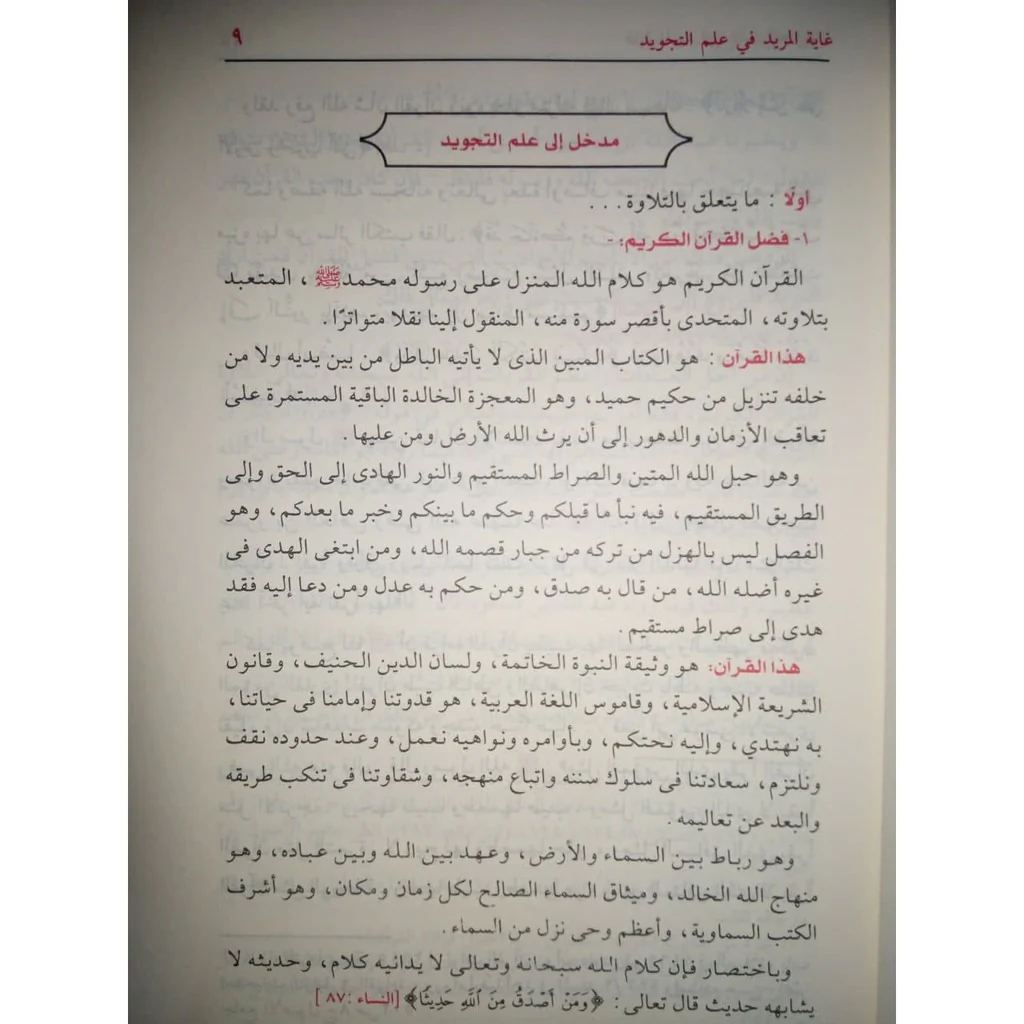 غاية المريد في علم التجويد ٩
مدخل إلى علم التجويد
أولًا : ما يتعلق بالتلاوة . . .
١- فضل القرآن الكريم: -
القرآن الكريم هو كلام الله المنزل على رسوله محمد ﷺ ، المتعبد
بتلاوته ، المتحدى بأقصر سورة منه، المنقول إلينا نقلا متواترًا .
هذا القرآن : هو الكتاب المبين الذى لا يأتيه الباطل من بين يديه ولا من
خلفه تنزيل من حكيم حميد، وهو المعجزة الخالدة الباقية المستمرة على
تعاقب الأزمان والدهور إلى أن يرث الله الأرض ومن عليها .
وهو حبل الله المتين والصراط المستقيم والنور الهادى إلى الحق وإلى
الطريق المستقيم، فيه نبأ ما قبلكم وحكم ما بينكم وخبر ما بعدكم، وهو
الفصل ليس بالهزل من تركه من جبار قصمه الله، ومن ابتغى الهدى فى
غيره أضله الله، من قال به صدق، ومن حكم به عدل ومن دعا إليه فقد
هدى إلى صراط مستقيم .
هذا القرآن: هو وثيقة النبوة الخاتمة، ولسان الدين الحنيف، وقانون
الشريعة الإسلامية، وقاموس اللغة العربية، هو قدوتنا وإمامنا فى حياتنا،
به نهتدي، وإليه نحتكم، وبأوامره ونواهيه نعمل، وعند حدوده نقف
ونلتزم، سعادتنا فى سلوك سننه واتباع منهجه، وشقاوتنا فى تنكب طريقه
والبعد عن تعاليمه .
وهو رباط بين السماء والأرض، وعهد بين الله وبين عباده، وهو
منهاج الله الخالد، وميثاق السماء الصالح لكل زمان ومكان، وهو أشرف
الكتب السماوية، وأعظم وحى نزل من السماء .
وباختصار فإن كلام الله سبحانه وتعالى لا يدانيه كلام، وحديثه لا
يشابهه حديث قال تعالى: ﴿وَمَنْ أَصْدَقُ مِنَ اللَّهِ حَدِيثًا﴾ [النساء : ٨٧]